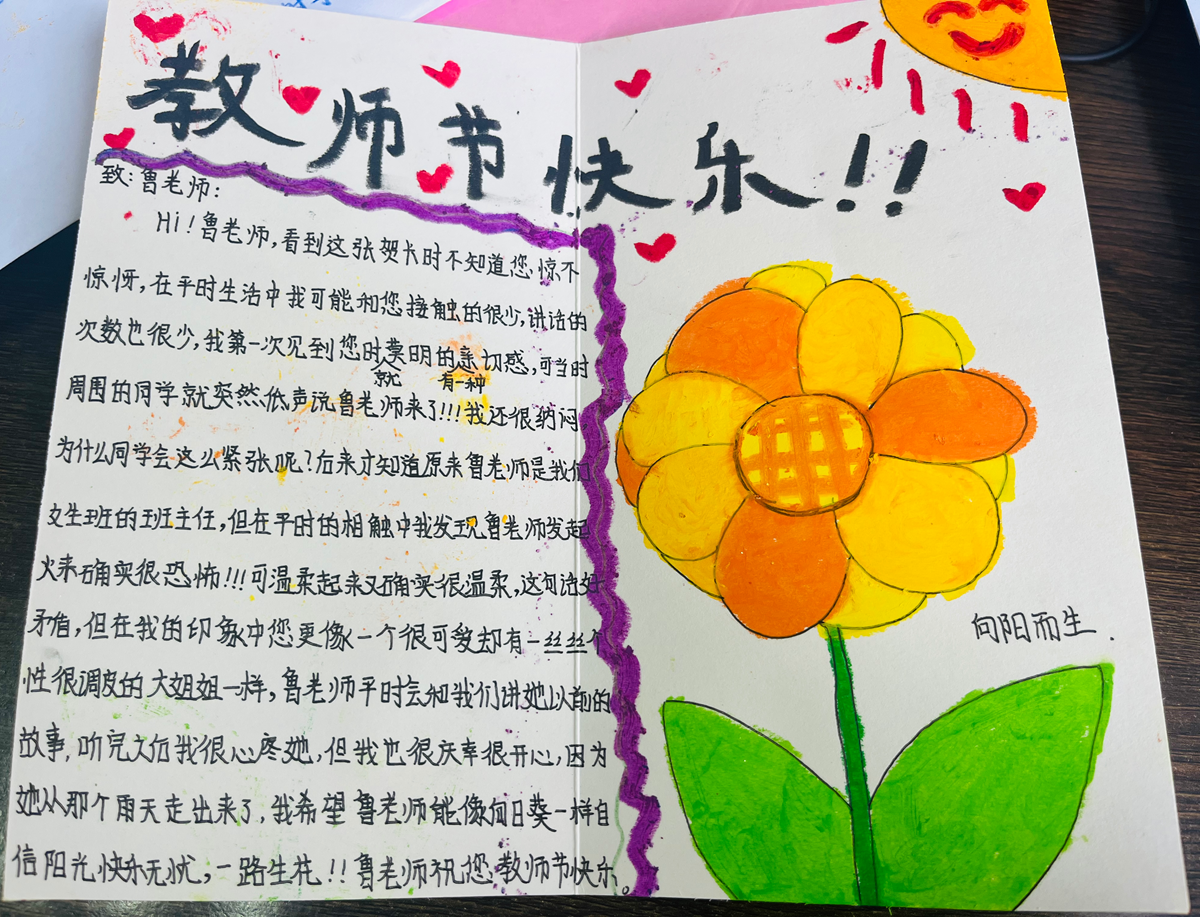 教师节快乐!!
致:鲁老师:
Hi!鲁老师,看到这张贺卡时不知道您惊不
惊呀,在平时生活中我可能和您接触的很少,讲话的
次数也很少,我第一次见到您时莫明的亲切感,可当时
就 有一种
周围的同学就突然低声说鲁老师来了!!!我还很纳闷
为什么同学会这么紧张呢?后来才知道原来鲁老师是我们
女生班的班主任,但在平时的相触中我发现鲁老师发起
火来确实很恐怖!!!可温柔起来又确实很温柔,这句话好
矛盾,但在我的印象中您更像一个很可爱却有一丝丝个
性很调皮的大姐姐一样,鲁老师平时会和我们讲她以前的
故事,听完之后我很心疼她,但我也很庆幸很开心,因为
她从那个雨天走出来了,我希望鲁老师能像向日葵一样自
信阳光快乐无忧,一路生花!!鲁老师祝您教师节快乐。
向阳而生.